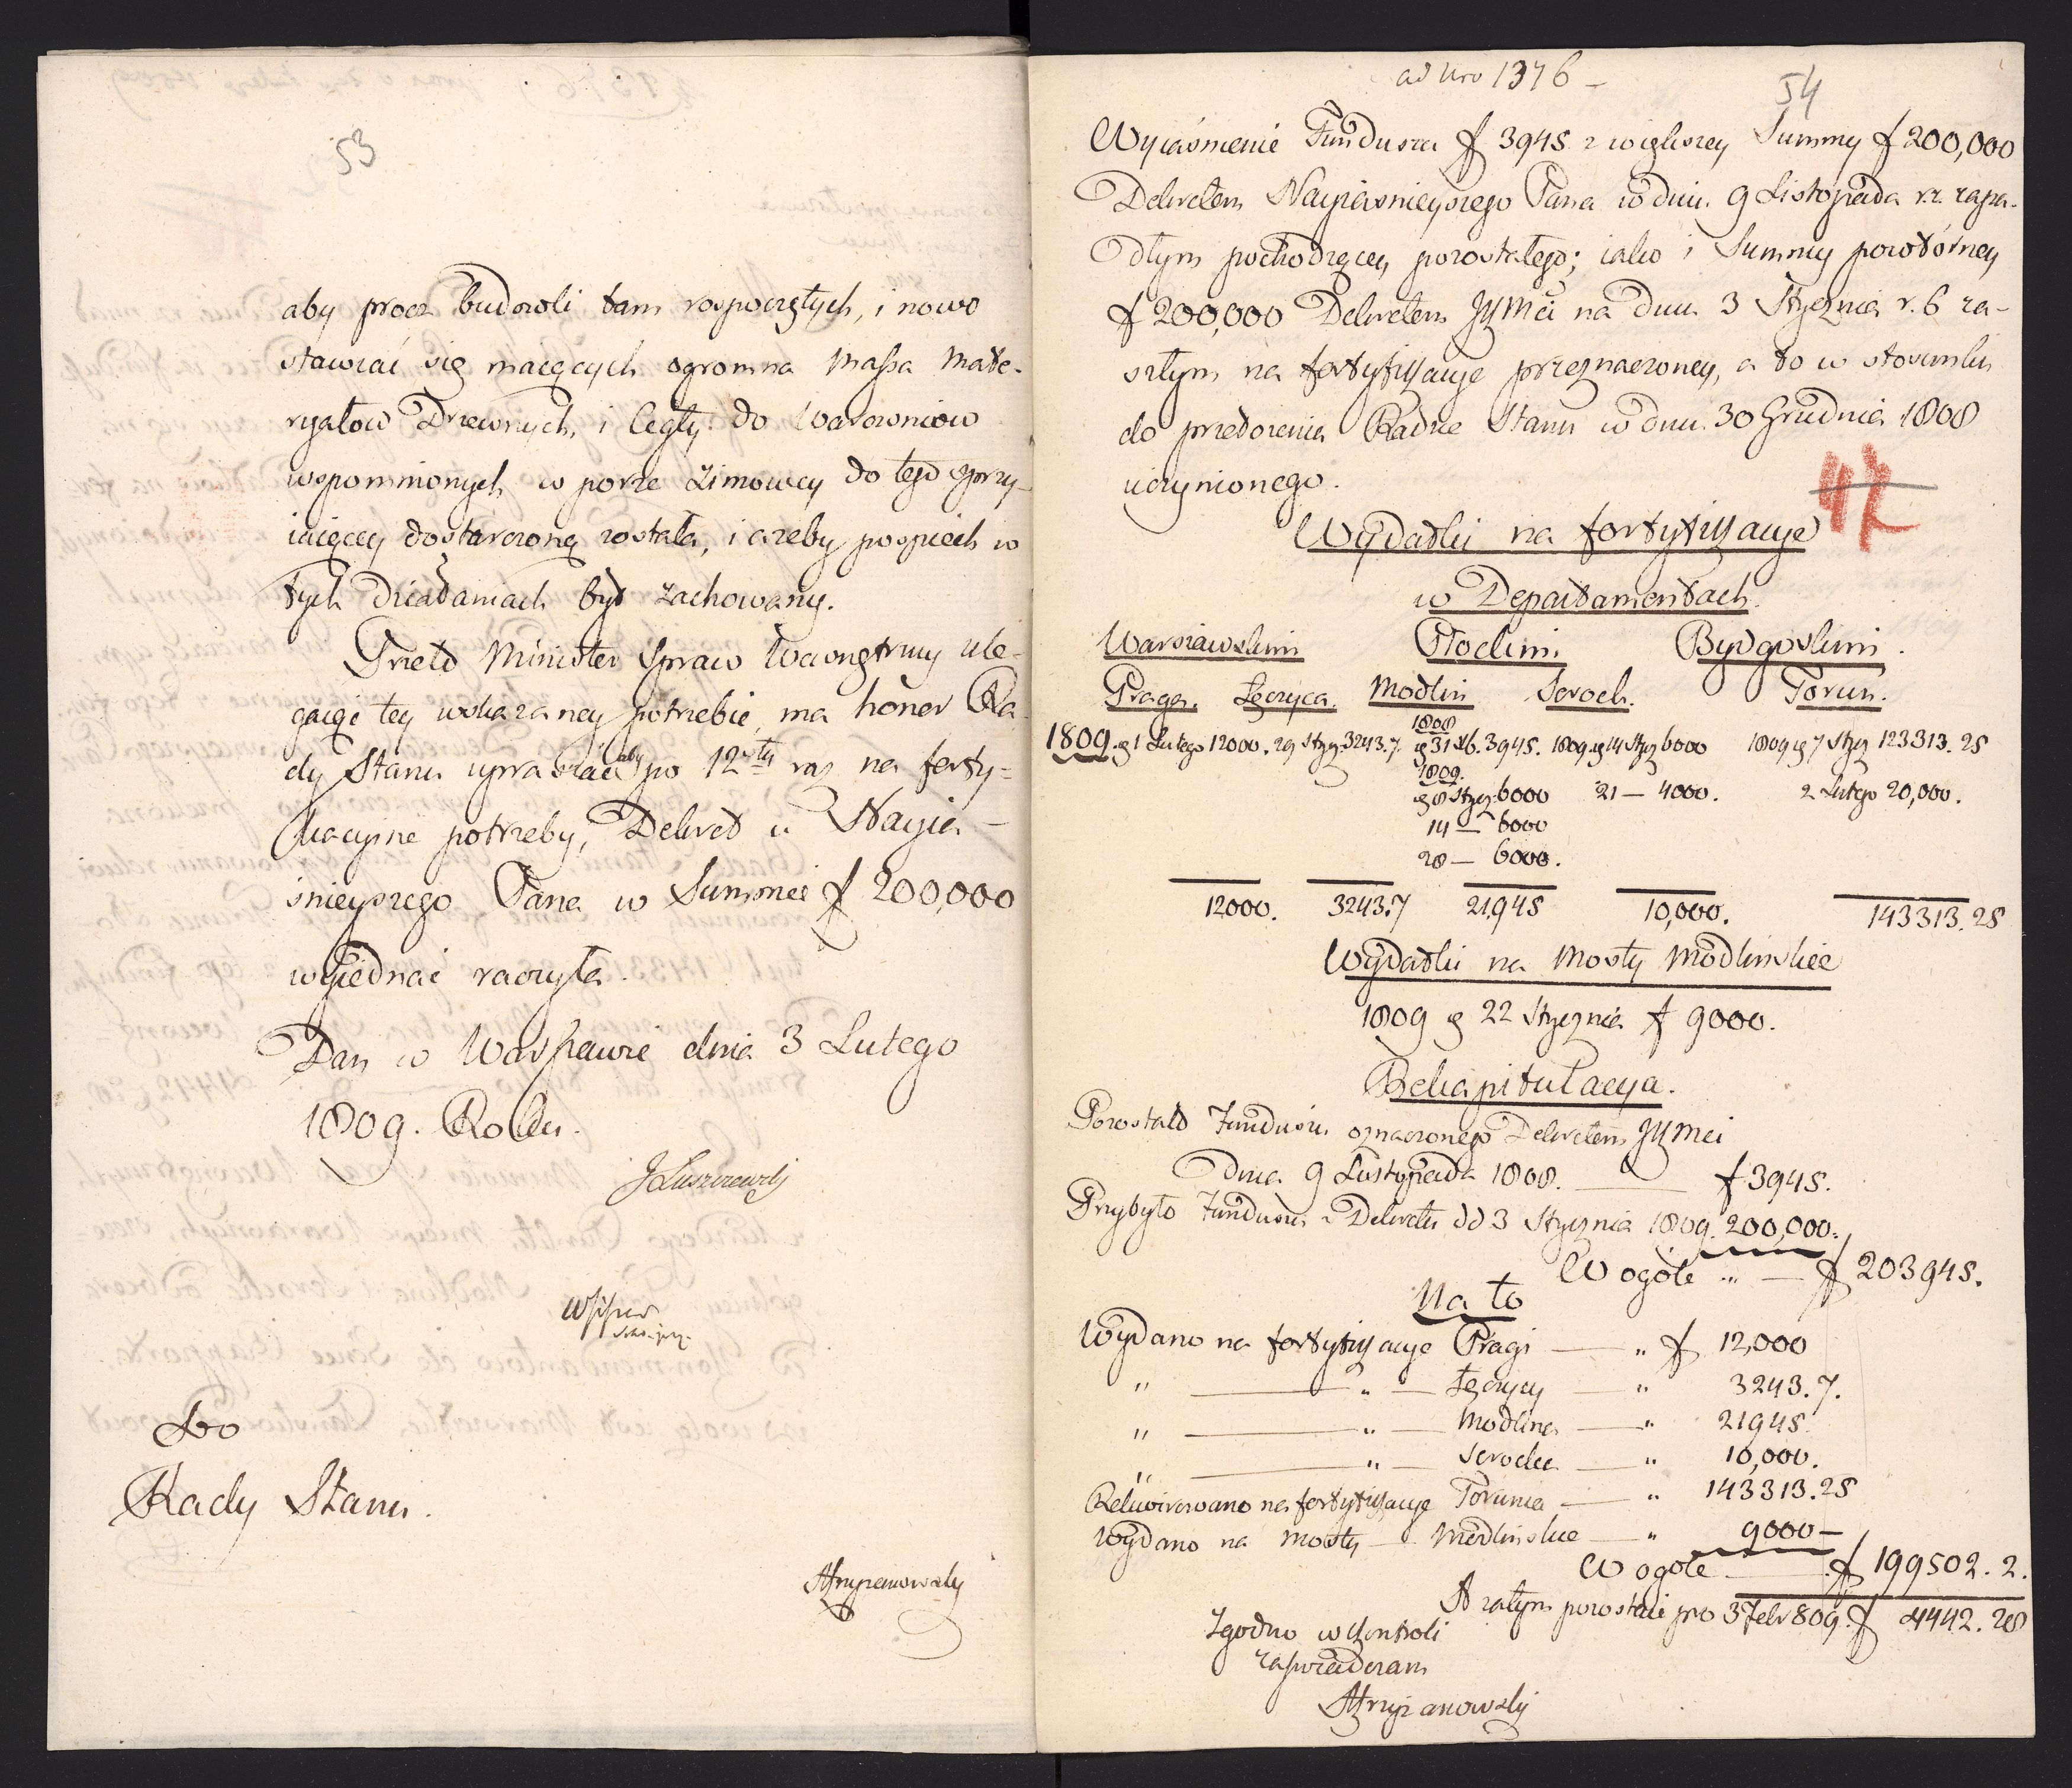 53
aby procz budowli tam rospoczętych, i nowo
stawiać się maiących ogromna Massa Mate-
ryałow Drzewnych i Cegły do Warowniow
wspomnionych w porze Zimowey do tego sprzy-
iaiącey dostarczoną została, i ażeby pospiech w
tych działaniach był zachowany.
Przeto Minister Spraw Wewnętrznych ule-
gaiąc tey wskazaney potrzebie, ma honor Ra-
dy Stanu upraszać aby po 12sty raz na forty-
fikacyine potrzeby, Dekret u Nayia-
śnieyszego Pana w Summie f 200,000
wyiednać raczyła.
Dan w Warszawie dnia 3 Lutego
1809. Roku.
JŁuszczewski
Do
Rady Stanu.
ASzypanowski
ad Nro 1376 –
54
Wyiaśnienie Funduszu f 3945 z większey Summy f 200,000
Dekretem Nayiaśnieyszego Pana w dniu 9 Listopada r.z. zapa-
dłym pochodzącey pozostałego; iako i Summy powtórney
f 200,000 Dekretem JKMci na dniu 3 Stycznia r. b za-
szłym na fortyfikacye przeznaczoney, a to w stosunku
do przełożenia Radzie Stanu w dniu 30 Grudnia 1808
uczynionego.
47
Wydatki na fortyfikacye
w Departamentach.
Warszawskim Płockim. Bydgoskim.
Praga. Łęczyca. Modlin Serock. Toruń.
1808
1809. 1 Lutego 12000. 29 Stycz. 3243.7. 31 Xb. 3945. 1809 14 Stycz 6000 1809 7 Stycz 123313.25
1809.
8 Stycz. 6000 21 — 4000. 2 Lutego 20,000.
14 — 6000
28 — 6000.
12000. 3243.7 21,945 10,000. 143313.25
Wydatki na Mosty Modlinskie
1809 22 Stycznia f 9000.
Rekapitulacya.
Pozostało Funduszu oznaczonego Dekretem JKMci
Dnia 9 Listopada 1808. — f 3945.
Przybyło Funduszu z Dekretu dd 3 Stycznia 1809. 200,000.
W ogóle „ — f 203945.
Na to
Wydano na fortyfikacye Pragi — „ f 12,000
„ — „ — Łęczycy — „ 3243.7.
„ — „ — Modlina — „ 21945.
„ — „ — Serocka — „ 10,000.
Rekwirowano na fortyfikacye Torunia — „ 143313.25
Wydano na mosty — Modlinskie — „ 9000 —
W ogóle — f 199502.2.
A zatym pozostaie pro 3 Febr 809. f 4442.28
Zgodno w Kontroli
zaświadczam
ASzypanowski